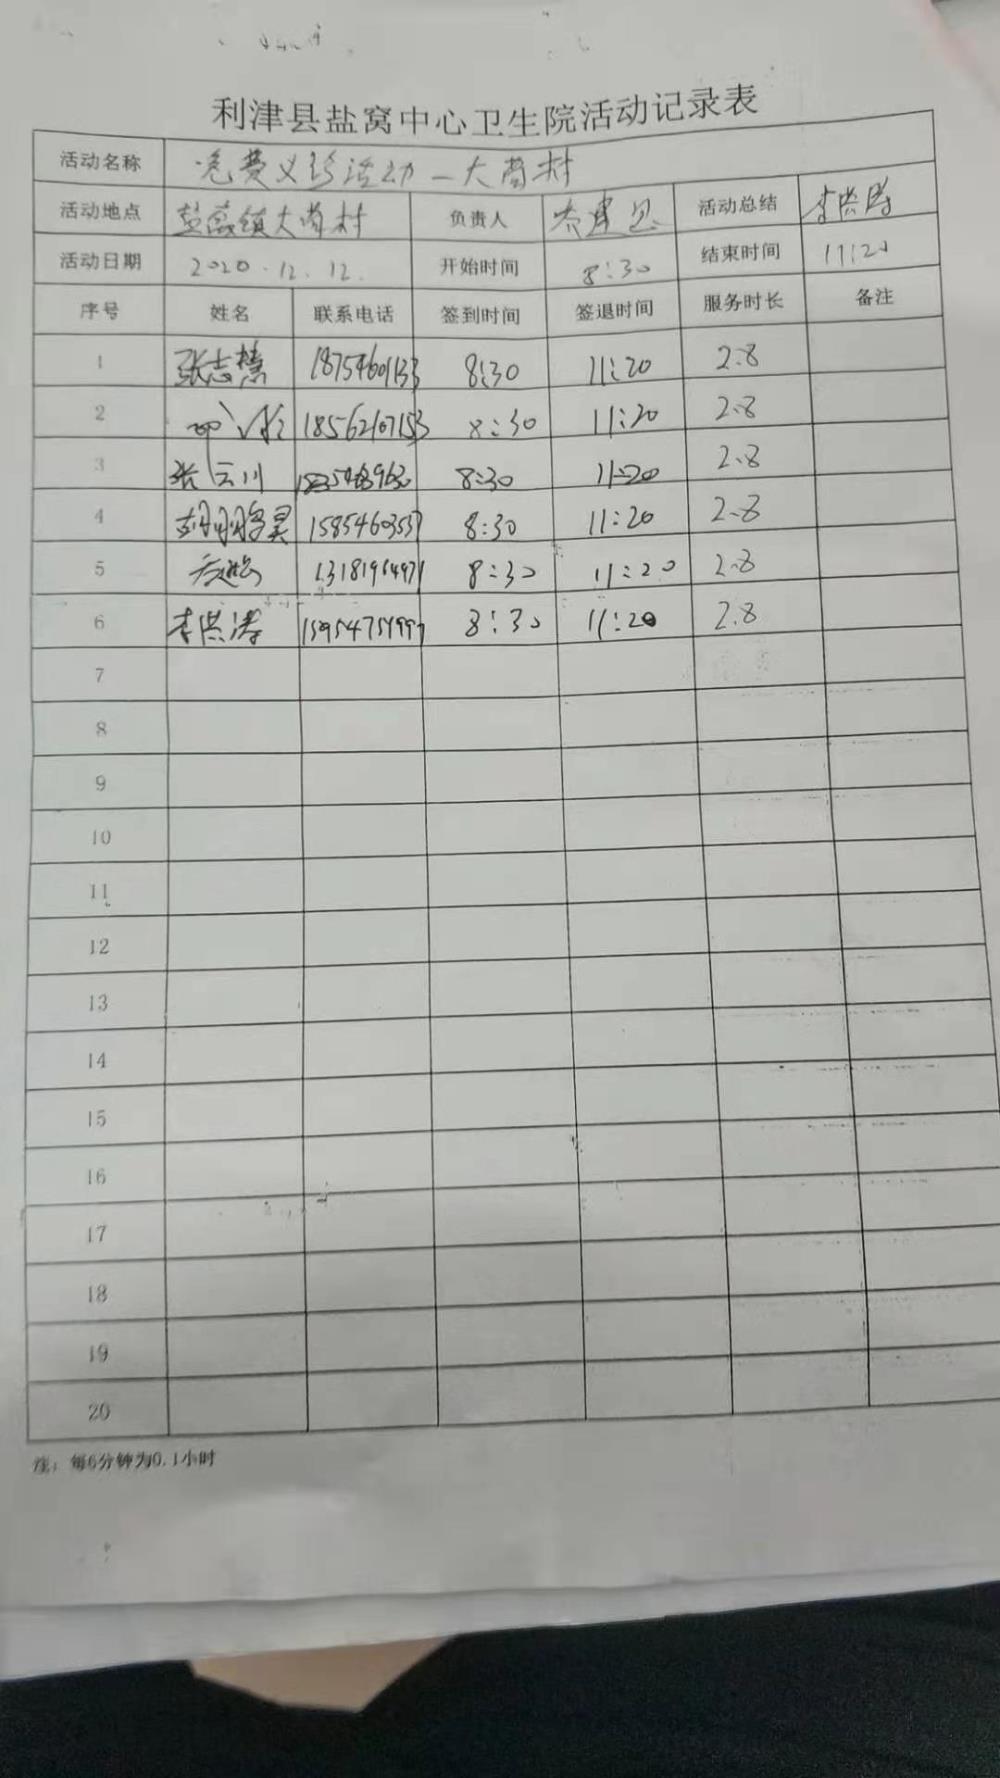 利津县盐窝中心卫生院活动记录表
活动名称 免费义诊活动—大荀村
活动地点 盐窝镇大荀村 负责人 活动总结 李洪涛
活动日期 2020.12.12. 开始时间 8:30 结束时间 11:20
序号 姓名 联系电话 签到时间 签退时间 服务时长 备注
1 张志慧 18754601133 8:30 11:20 2.8
2 18562107153 8:30 11:20 2.8
3 张云川 8:30 11:20 2.8
4 胡鹏昊 1585460353 8:30 11:20 2.8
5 8:30 11:20 2.8
6 李洪涛 8:30 11:20 2.8
7
8
9
10
11
12
13
14
15
16
17
18
19
20
注：每6分钟为0.1小时